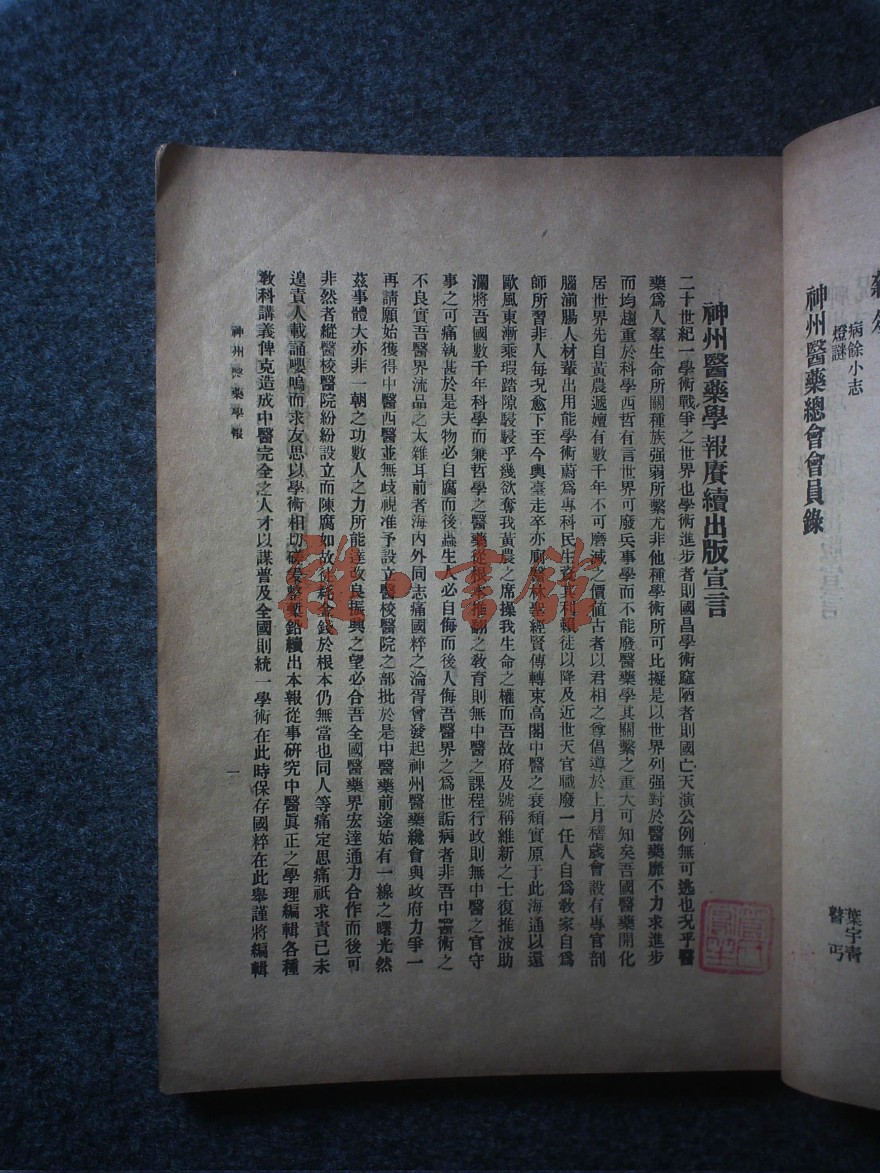 雜俎
病餘小志
燈謎
葉宇青
瞽丐
神州醫藥總會會員錄
神州醫藥學報賡續出版宣言
二十世紀一學術戰爭之世界也學術進步者則國昌學術窳陋者則國亡天演公例無可逃也况乎醫
藥爲人羣生命所關種族强弱所繫尤非他種學術所可比擬是以世界列强對於醫藥靡不力求進步
而均趨重於科學西哲有言世界可廢兵事學而不能廢醫藥學其關繫之重大可知矣吾國醫藥開化
居世界先自黃農遞嬗有數千年不可磨滅之價值古者以君相之尊倡導於上月稽歲會設有專官剖
腦湔腸人材輩出用能學術蔚爲專科民生資其利賴徒以降及近世天官職廢一任人自爲教家自爲
師所習非人每况愈下至今輿臺走卒亦廁醫林聖經賢傳轉束高閣中醫之衰頹實原于此海通以還
歐風東漸乘瑕蹈隙駸駸乎幾欲奪我黃農之席操我生命之權而吾故府及號稱維新之士復推波助
瀾將吾國數千年科學而兼哲學之醫藥從根本推翻之教育則無中醫之課程行政則無中醫之官守
事之可痛孰甚於是夫物必自腐而後蟲生人必自侮而後人侮吾醫界之爲世詬病者非吾中醫術之
不良實吾醫界流品之太雜耳前者海內外同志痛國粹之淪胥曾發起神州醫藥總會與政府力爭一
再請願始獲得中醫西醫並無歧視准予設立醫校醫院之部批於是中醫藥前途始有一線之曙光然
茲事體大亦非一朝之功數人之力所能達改良振興之望必合吾全國醫藥界宏達通力合作而後可
非然者縱醫校醫院紛紛設立而陳腐如故徒耗金錢於根本仍無當也同人等痛定思痛祇求責己未
遑責人載誦嚶鳴而求友思以學術相切磋爰整槧鉛續出本報從事研究中醫眞正之學理編輯各種
教科講義俾克造成中醫完全之人才以謀普及全國則統一學術在此時保存國粹在此舉謹將編輯
神州醫藥學報
一
雜·書館